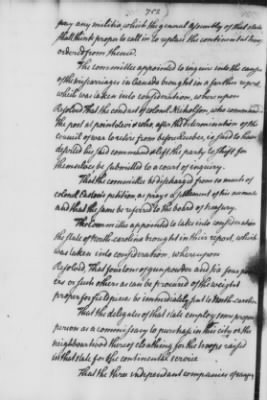 752
pay any militia, which the general assembly of that state
shall think proper to call in to replace the continental troops
ordered from thence.
The committee appointed to inquire into the cause
of the miscarriages in Canada brought in a farther report
which was taken into consideration, whereupon
Resolved, That the conduct of colonel Nicholson, who commanded
the post at point who after the determination of the
council of war to retire from before quebec, is said to have
deserted his said command & left the party to shift for
themselves be submitted to a court of inquiry.
That the committee be discharged from so much of
colonel Easton's petition, as prays a settlement of his accounts
and that the same be referred to the board of treasury.
The Committee appointed to take into consideration
the State of North carolina brought in their report, which
was taken into consideration, whereupon
Resolved, That four tons of gun powder and six four pound
ers or such others as can be procured of the weight
proper for field pieces be immediately sent to North carolina
That the delegates of that state employ some proper
person as a commissary to purchase in this city or the
neighbourhood thereof cloathing for the troops raised
in that state for the continental service
That the three independant companies of